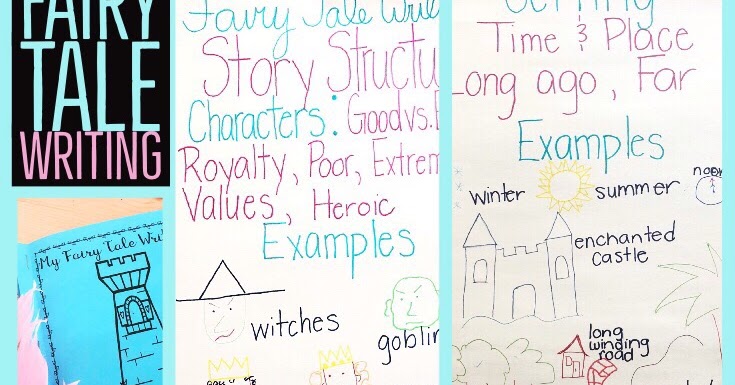 FAIRY
TALE
WRITING
My Fairy Tale Writ
Fairy Tale Writ
Story Structu
Characters: Good vs.
Royalty, Poor, Extrem
Values, Heroic
Examples
witches
goblin
Setting
Time & Place
Long ago, Far
Examples
winter
summer
noon
enchanted
castle
long
winding
road